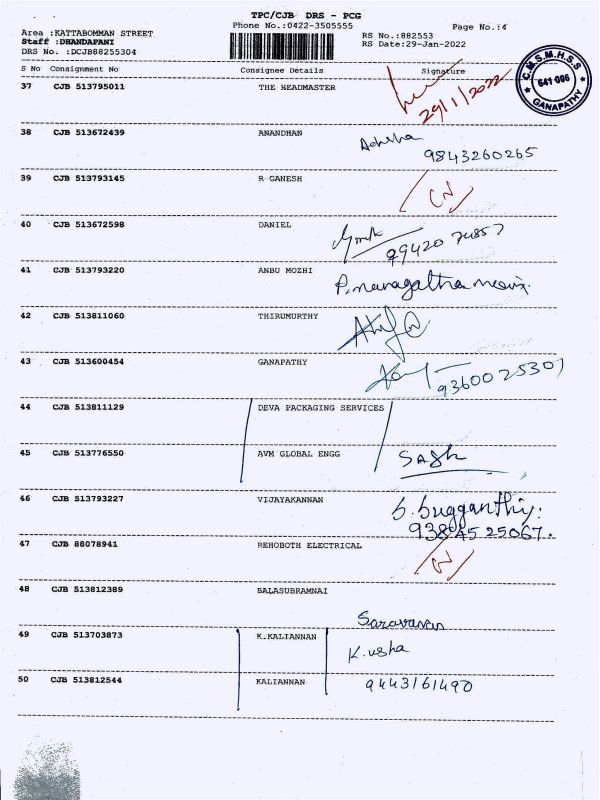 TPC/CJB DRS - PCG
Area :KATTABOMMAN STREET Phone No.:0422-3505555 Page No.:4
Staff :DHANDAPANI RS No.:882553
DRS No. :DCJB88255304 RS Date:29-Jan-2022
S No Consignment No Consignee Details Signature
C.M.S.M.H.S.S
641 006
GANAPATHY
37 CJB 513795011 THE HEADMASTER
29/1/2022
38 CJB 513672439 ANANDHAN
9843260265
39 CJB 513793145 R GANESH
CN
40 CJB 513672598 DANIEL
99420 74857
41 CJB 513793220 ANBU MOZHI
42 CJB 513811060 THIRUMURTHY
43 CJB 513600454 GANAPATHY
93600 25307
44 CJB 513811129 DEVA PACKAGING SERVICES
45 CJB 513776550 AVM GLOBAL ENGG
46 CJB 513793227 VIJAYAKANNAN
93845 25067.
47 CJB 88078941 REHOBOTH ELECTRICAL
CN
48 CJB 513812389 BALASUBRAMNAI
Saravanan
49 CJB 513703873 K.KALIANNAN
K.usha
50 CJB 513812544 KALIANNAN
9443161490